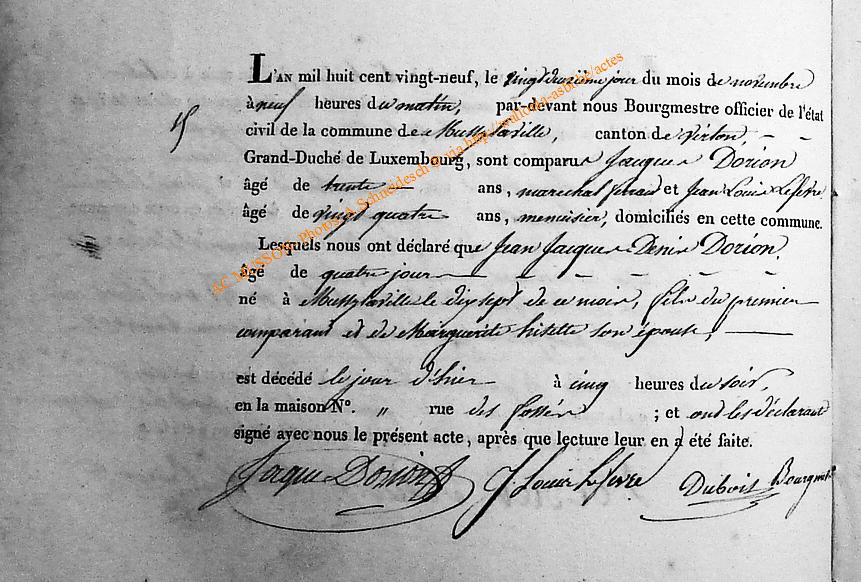 L'AN mil huit cent vingt-neuf, le vingt deuxième jour du mois de novembre
à neuf heures du matin, par-devant nous Bourgmestre officier de l'état
15
civil de la commune de Mussylaville, canton de Virton, - -
Grand-Duché de Luxembourg, sont comparus Jacques Dorion
âgé de trente ans, marechal ferrant et Jean Louis Lefevre
âgé de vingt quatre ans, menuisier, domiciliés en cette commune.
Lesquels nous ont déclaré que Jean Jacques Denis Dorion.
âgé de quatre jours - - - - - -
né à Mussylaville le dix sept de ce mois, fils du premier
comparant et de Marguerite son épouse,
est décédé le jour d'hier à cinq heures du soir,
en la maison N°. „ rue des fossés ; et ont les déclarant
signé avec nous le présent acte, après que lecture leur en a été faite.
Jaque Dorion J. Louis Lefevre Dubois Bourgmtre
A.C. MUSSON, Photos A. Schneidesch © via http://www. /actes